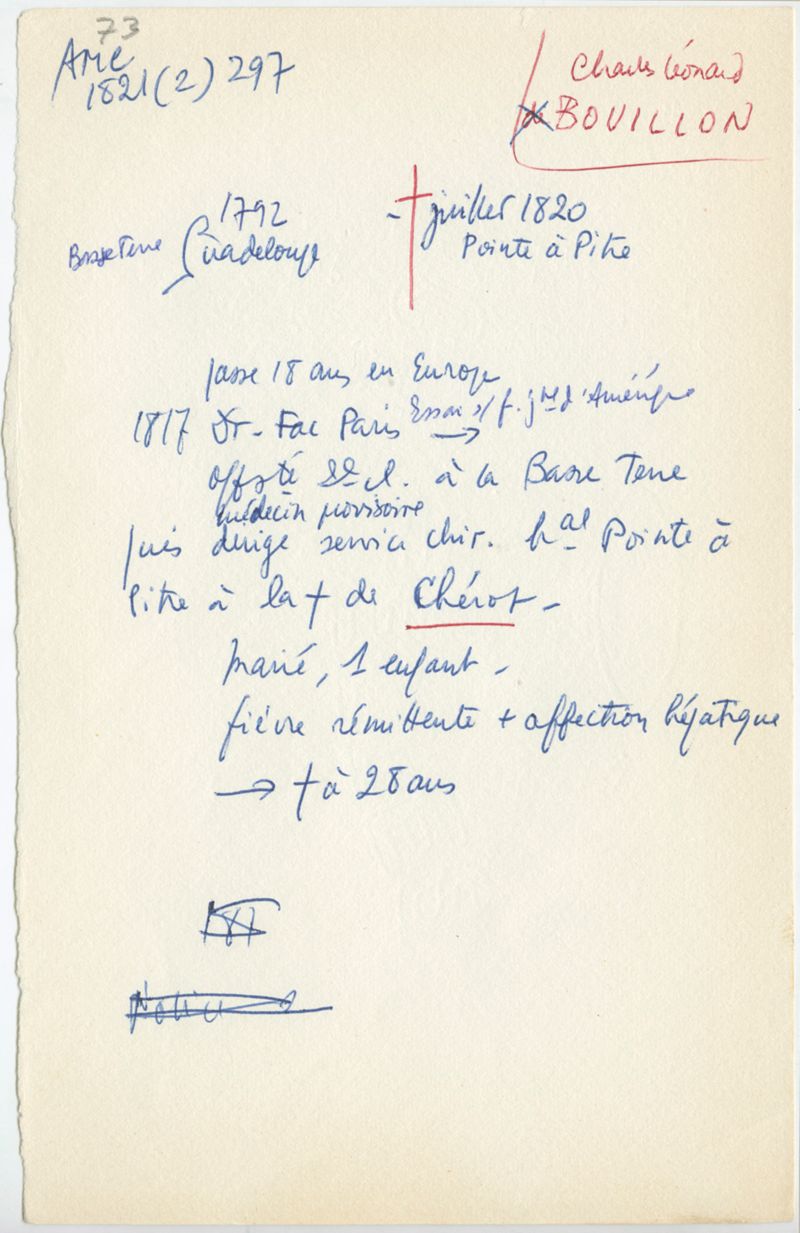 73
AMC
1821 (2) 297
Charles Léonard
de BOUILLON
1792
Basse Terre Guadeloupe
- † juillet 1820
Pointe à Pitre
passe 18 ans en Europe
1817 Dr - Fac Paris Essai s/ f. jne d'Amérique
→
off. sté 2e cl. à la Basse Terre
médecin provisoire
puis dirige service chir. hal Pointe à
Pitre à la † de Chérot -
marié, 1 enfant -
fièvre rémittente + affection hépatique
→ † à 28 ans
187